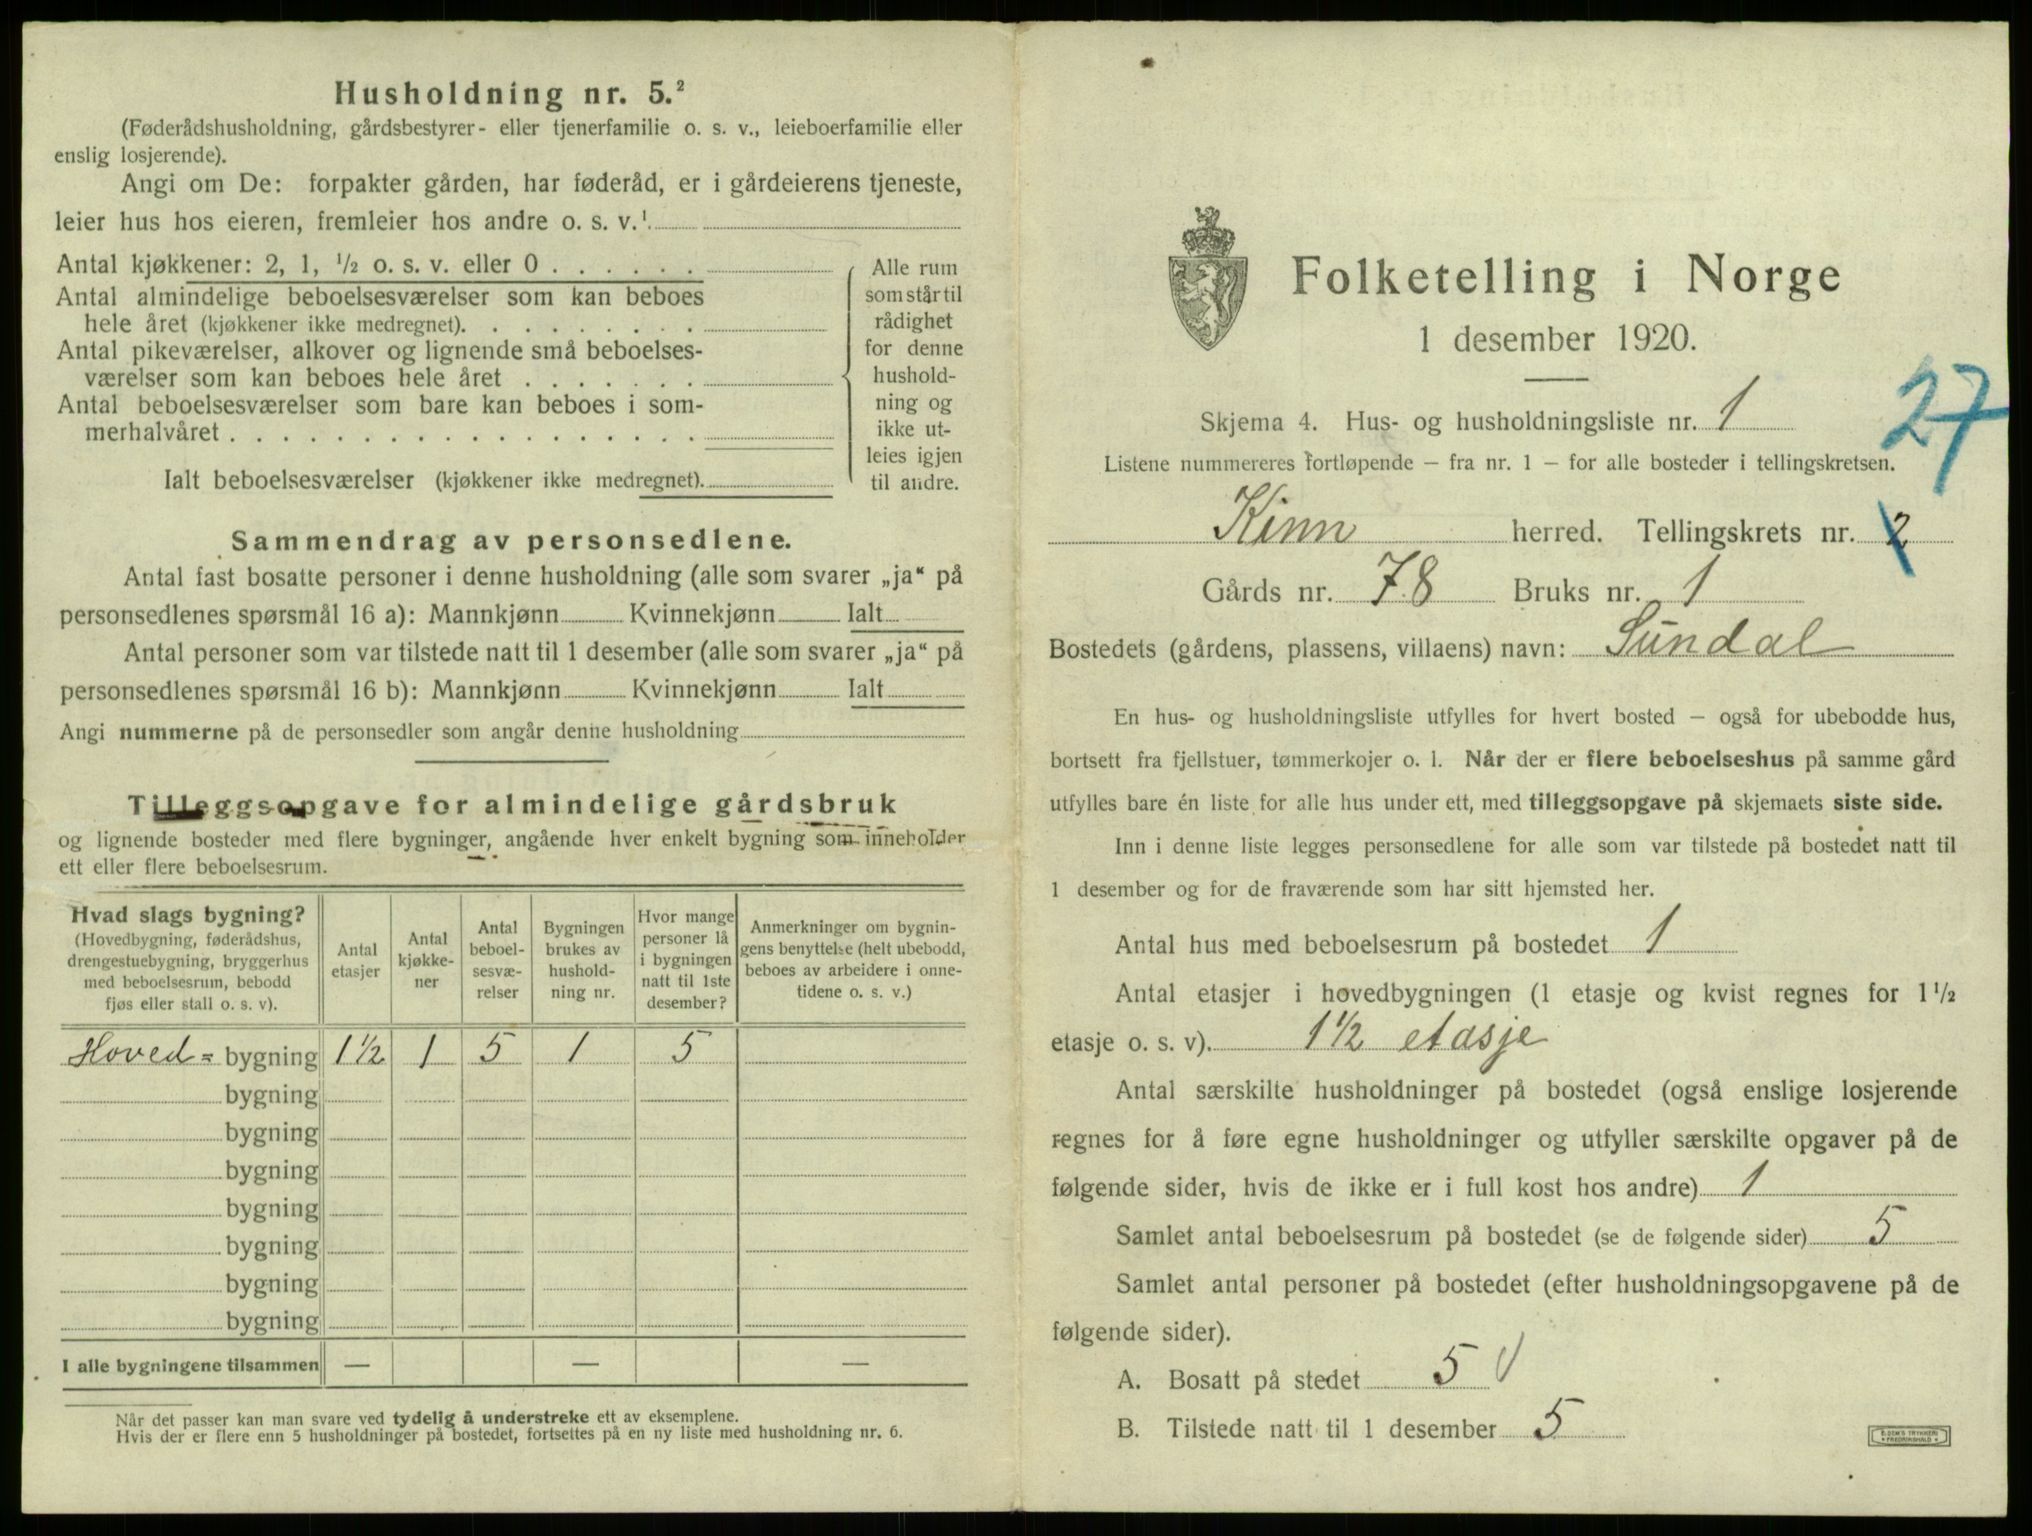 Husholdning nr. 5.²
(Føderådshusholdning, gårdsbestyrer- eller tjenerfamilie o. s. v., leieboerfamilie eller
enslig losjerende).
Angi om De: forpakter gården, har føderåd, er i gårdeierens tjeneste,
leier hus hos eieren, fremleier hos andre o. s. v.¹
Antal kjøkkener: 2, 1, ½ o. s. v. eller 0 . . . . . .
Antal almindelige beboelsesværelser som kan beboes
hele året (kjøkkener ikke medregnet). . . . . . . . .
Antal pikeværelser, alkover og lignende små beboelses-
værelser som kan beboes hele året . . . . . . .
Antal beboelsesværelser som bare kan beboes i som-
merhalvåret . . . . . . . . . . . . . . . . . .
Ialt beboelsesværelser (kjøkkener ikke medregnet).
Alle rum
som står til
rådighet
for denne
hushold-
ning og
ikke ut-
leies igjen
til andre.
Sammendrag av personsedlene.
Antal fast bosatte personer i denne husholdning (alle som svarer „ja“ på
personsedlenes spørsmål 16 a): Mannkjønn Kvinnekjønn Ialt
Antal personer som var tilstede natt til 1 desember (alle som svarer „ja“ på
personsedlenes spørsmål 16 b): Mannkjønn Kvinnekjønn Ialt
Angi nummerne på de personsedler som angår denne husholdning
Tilleggsopgave for almindelige gårdsbruk
og lignende bosteder med flere bygninger, angående hver enkelt bygning som inneholder
ett eller flere beboelsesrum.
Hvad slags bygning?
(Hovedbygning, føderådshus,
drengestuebygning, bryggerhus
med beboelsesrum, bebodd
fjøs eller stall o. s. v).
Antal
etasjer
Antal
kjøkke-
ner
Antal
beboel-
sesvæ-
relser
Bygningen
brukes av
hushold-
ning nr.
Hvor mange
personer lå
i bygningen
natt til 1ste
desember?
Anmerkninger om bygnin-
gens benyttelse (helt ubebodd,
beboes av arbeidere i onne-
tidene o. s. v.)
Hoved= bygning 1½ 1 5 1 5
bygning
bygning
bygning
bygning
bygning
bygning
bygning
I alle bygningene tilsammen — — —
Når det passer kan man svare ved tydelig å understreke ett av eksemplene.
Hvis der er flere enn 5 husholdninger på bostedet, fortsettes på en ny liste med husholdning nr. 6.
Folketelling i Norge
1 desember 1920.
27
Skjema 4. Hus- og husholdningsliste nr. 1
Listene nummereres fortløpende – fra nr. 1 – for alle bosteder i tellingskretsen.
Kinn herred. Tellingskrets nr. 2
Gårds nr. 78 Bruks nr. 1
Bostedets (gårdens, plassens, villaens) navn: Sundal
En hus- og husholdningsliste utfylles for hvert bosted – også for ubebodde hus,
bortsett fra fjellstuer, tømmerkojer o. l. Når der er flere beboelseshus på samme gård
utfylles bare én liste for alle hus under ett, med tilleggsopgave på skjemaets siste side.
Inn i denne liste legges personsedlene for alle som var tilstede på bostedet natt til
1 desember og for de fraværende som har sitt hjemsted her.
Antal hus med beboelsesrum på bostedet 1
Antal etasjer i hovedbygningen (1 etasje og kvist regnes for 1½
etasje o. s. v). 1½ etasje
Antal særskilte husholdninger på bostedet (også enslige losjerende
regnes for å føre egne husholdninger og utfyller særskilte opgaver på de
følgende sider, hvis de ikke er i full kost hos andre) 1
Samlet antal beboelsesrum på bostedet (se de følgende sider) 5
Samlet antal personer på bostedet (efter husholdningsopgavene på de
følgende sider).
A. Bosatt på stedet 5
B. Tilstede natt til 1 desember 5
E. SEM'S TRYKKERI
FREDRIKSHALD